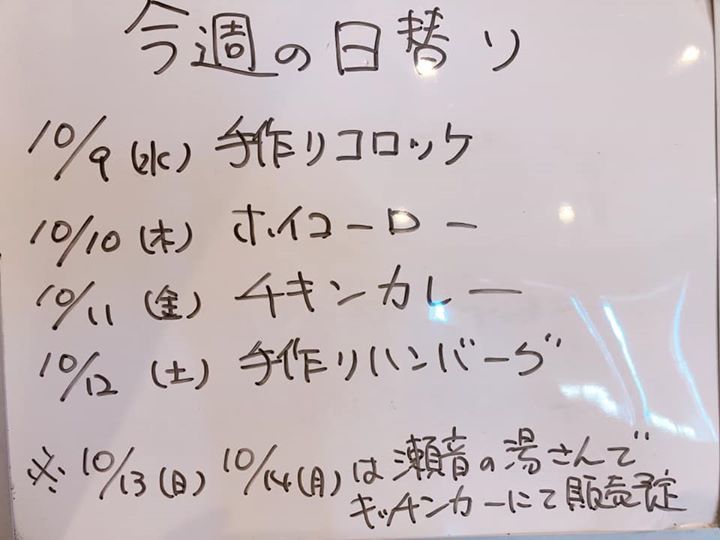 今週の日替り
10/9(水) 手作りコロッケ
10/10(木) ホイコーロー
10/11(金) チキンカレー
10/12(土) 手作りハンバーグ
※10/13(日) 10/14(月)は瀬音の湯さんで
キッチンカーにて販売予定